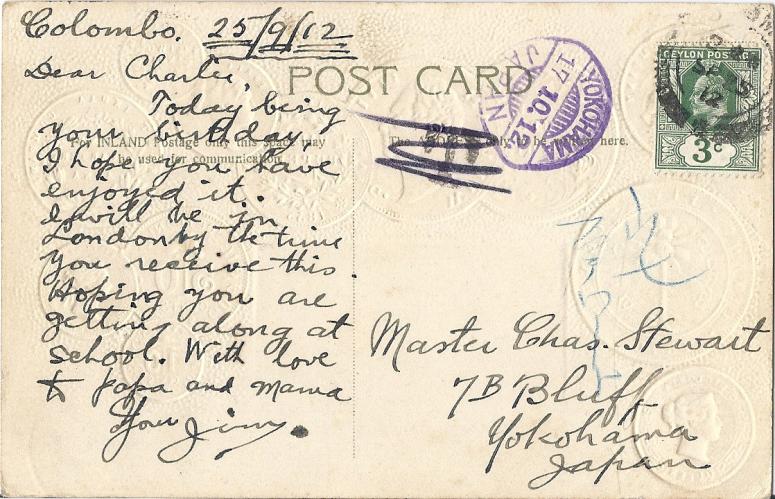 Colombo. 25/9/12
Dear Charlie,
POST CARD
Today being
your birthday
For INLAND Postage only this space may
be used for communication.
I hope you have
enjoyed it.
I will be in
London by the time
you receive this.
Hoping you are
getting along at
school. With love
to Papa and Mama
Your Jim.
YOKOHAMA
17.10.12
JAPAN
The only to be here.
CEYLON POSTAGE
3c
Master Chas. Stewart
7B Bluff
Yokohama
Japan